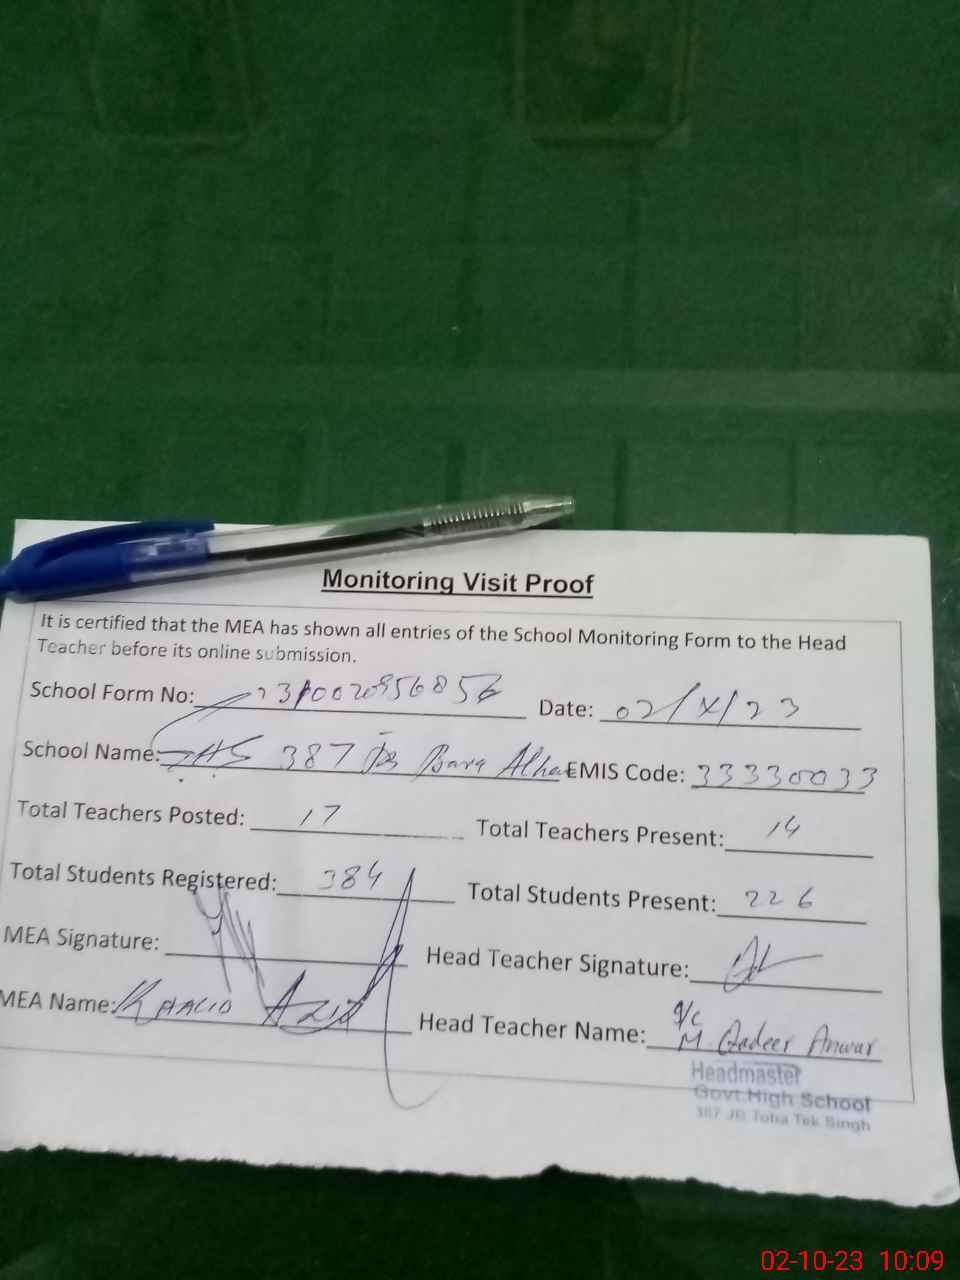 Monitoring Visit Proof
It is certified that the MEA has shown all entries of the School Monitoring Form to the Head
Teacher before its online submission.
School Form No: Date: 02/X/23
School Name: GHS 387 JB EMIS Code: 33330033
Total Teachers Posted: 17 Total Teachers Present: 14
Total Students Registered: 384 Total Students Present: 226
MEA Signature: Head Teacher Signature:
MEA Name: KHALID AZIZ Head Teacher Name: I/C M. Qadeer Anwar
Headmaster
Govt. High School
387 JB Toba Tek Singh
02-10-23 10:09